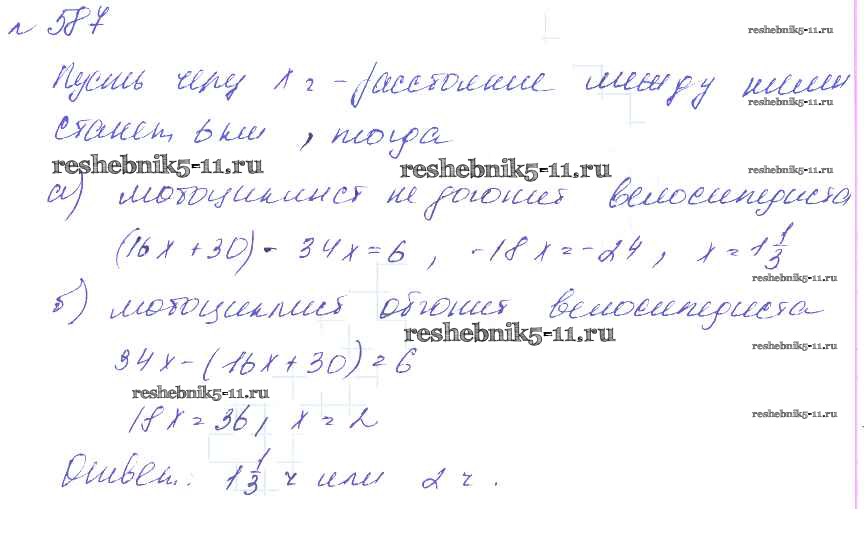 № 587
reshebnik5-11.ru
Пусть через х ч - расстояние между ними
reshebnik5-11.ru
станет 6 км, тогда
reshebnik5-11.ru reshebnik5-11.ru reshebnik5-11.ru
а) мотоциклист не догонит велосипедиста
(16х + 30) - 34х = 6, -18х = -24, х = 1 1/3
reshebnik5-11.ru
б) мотоциклист обгонит велосипедиста
reshebnik5-11.ru reshebnik5-11.ru
34х - (16х + 30) = 6
reshebnik5-11.ru
18х = 36, х = 2
reshebnik5-11.ru
Ответ: 1 1/3 ч или 2 ч.